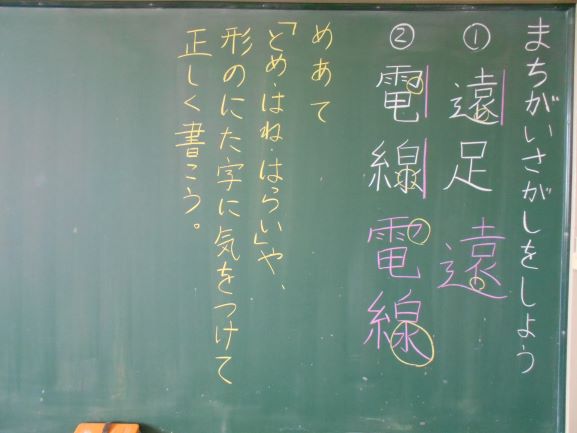 まちがいさがしをしよう
① 遠足 遠
② 電線 電線
めあて
「とめ・はね・はらい」や、
形のにた字に気をつけて
正しく書こう。